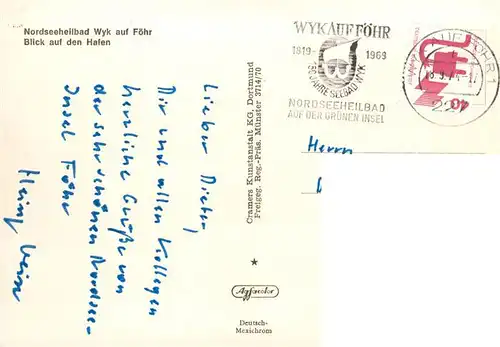 Nordseeheilbad Wyk auf Föhr
Blick auf den Hafen
Lieber Dieter,
Dir und allen Kollegen
herzliche Grüße von
der sehr schönen Nordsee-
insel Föhr
Heinz
Cramers Kunstanstalt KG. Dortmund
Freigeg. Reg.-Präs. Münster 3714/70
Agfacolor
Deutsch-
Mexichrom
WYK AUF FÖHR
1819-1969
150 JAHRE SEEBAD WYK
NORDSEEHEILBAD
AUF DER GRÜNEN INSEL
AUF FÖHR
40
Herrn